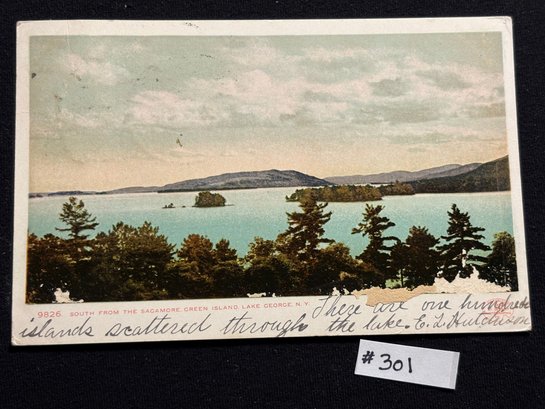 9826. SOUTH FROM THE SAGAMORE, GREEN ISLAND, LAKE GEORGE, N.Y.
There are one hundred
islands scattered through the lake. E. L. Hutchison
#301